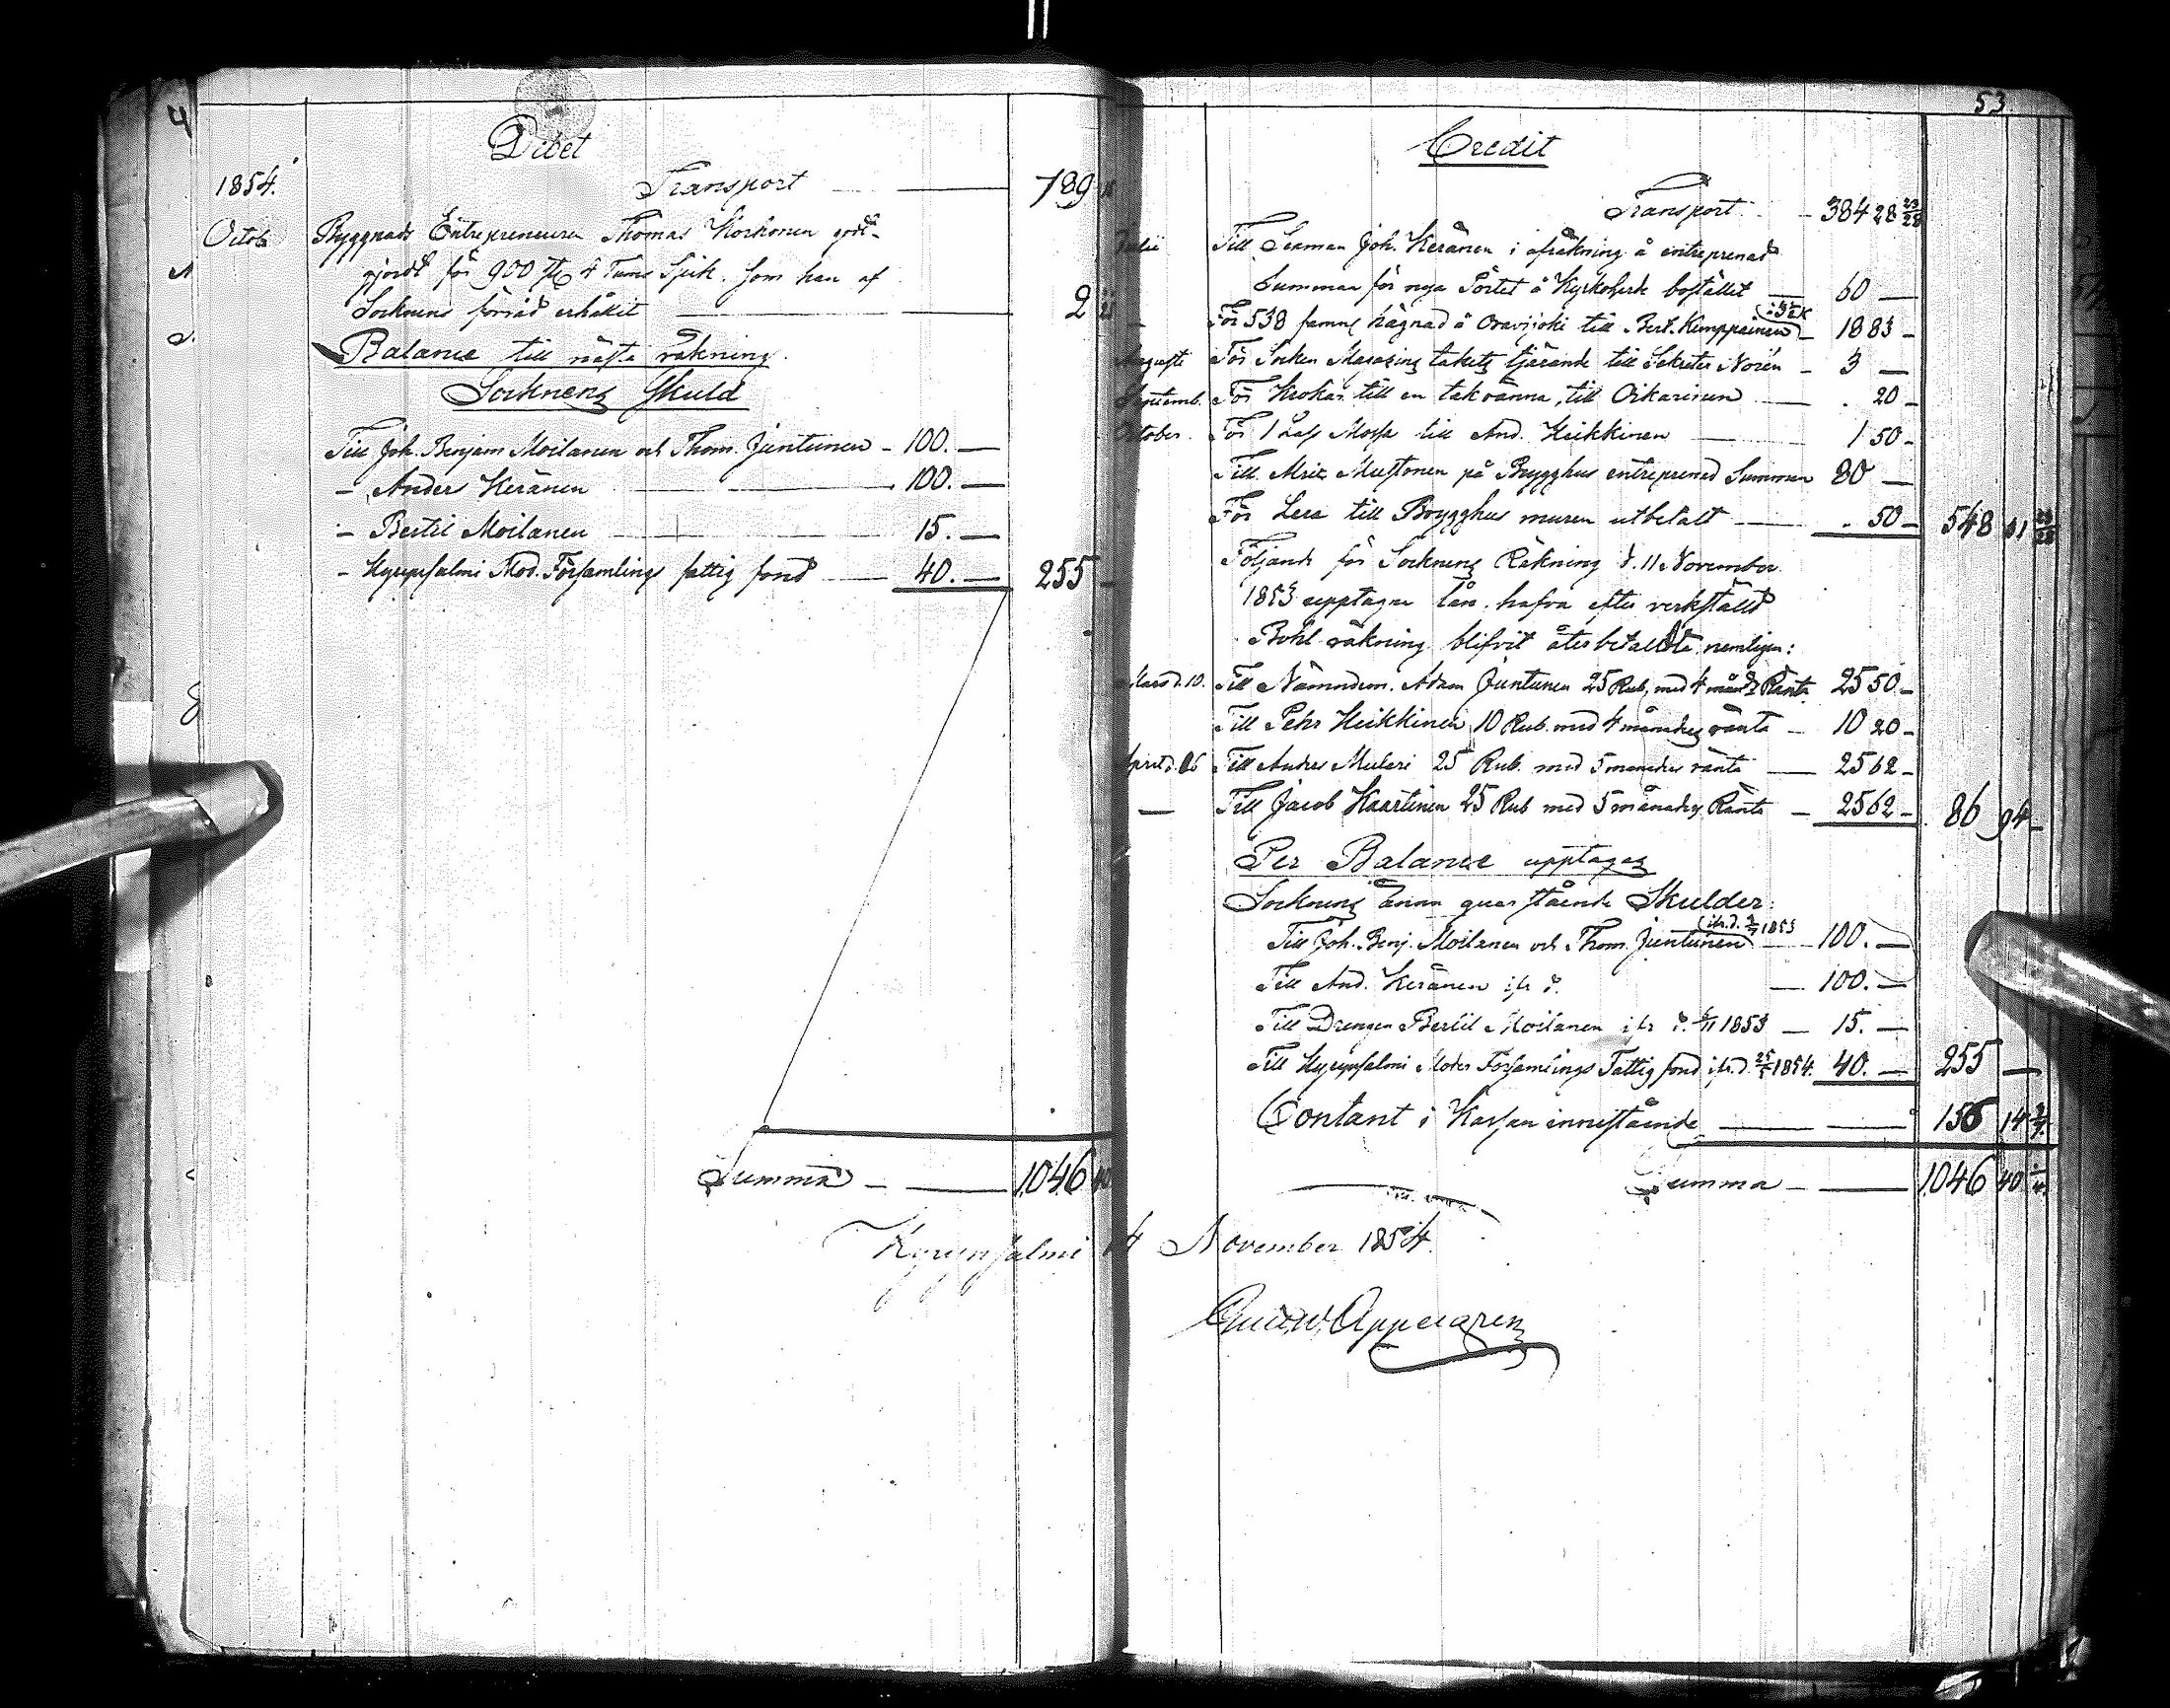 Debet
1854. Transport 789
Octob Byggnads Entrepreneuren Thomas Korhonen godt-
gjordt för 900 4 Tums Spik. som han af
Socknens förråd erhållit 2
Balance till nästa räkning.
Sockneng Skuld
Till Joh. Benjam Moilanen och Thom. Juntunen - 100. —
- Anders Keränen 100. —
- Bertil Moilanen 15. —
- Kyrynsalmi Mod. Församlings fattig fond 40. — 255 —
Summa — 1046
53
Credit
Transport 384 28 23/28
Julii Till Seaman Joh. Keränen i afräkning å entreprenad
Summan för nya Pörtet å Kyrkoherde bostället 60 —
För 538 famng hägnad å Oravijoki till Bert. Kemppainen 18 83 -
Augusti För Socken Magasing taketz tjärande till Sekreter Norén 3 —
Septemb. För Krokar till en takränna, till Oikarinen . 20 -
October. För 1 Lass Mossa till And. Heikkinen 1 50 -
Till Mustonen på Brygghus entreprenad Summan 80 —
För Lera till Brygghus muren utbetalt . 50 - 548 61 23/28
Följande för Sockneng Räkning d. 11 November
1853 upptagne lån, hafva efter verkstäld
Bohl räkning blifvit återbetallte, nemligen:
Mars d. 10. Till Nämndem. Adam Juntunen 25 Rub. med 4 mån:s Ränta 25 50 -
Till Pehr Heikkinen 10 Rub. med 4 månaders ränta 10 20 -
April d. 16 Till Anders Mulari 25 Rub. med 5 månaders ränta 25 62 -
— Till Jacob Kaartinen 25 Rub med 5 månaders Ränta 25 62 - 86 94 -
Per Balance upptages
Sockneng ännu quarstående Skulder:
Till Joh. Benj. Moilanen och Thom. Juntunen 1853 100. —
Till And. Keränen 100. —
Till Drengen Bertil Moilanen 1853 15. —
Till Kyrynsalmi Moder Församlings Fattig fond 1854. 40. — 255 —
Contant i Kassan innestående 156 14
Summa — 1046 40
Kyrynsalmi November 1854.